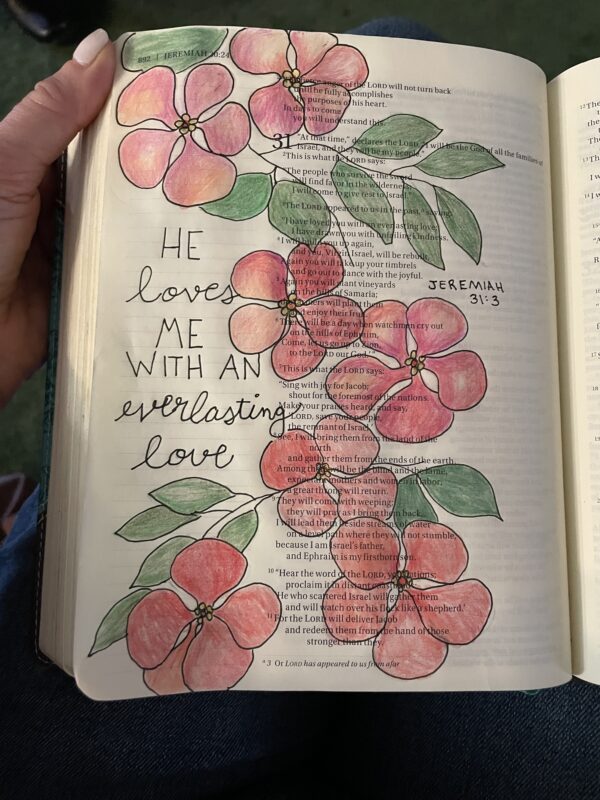 892 | JEREMIAH 30:24
fierce anger of the LORD will not turn back
until he fully accomplishes
purposes of his heart.
In days to come
you will understand this.
31 "At that time," declares the LORD, "I will be the God of all the families of
Israel, and they will be my people."
2 This is what the LORD says:
"The people who survive the sword
will find favor in the wilderness;
I will come to give rest to Israel."
3 The LORD appeared to us in the past,a saying:
"I have loved you with an everlasting love;
I have drawn you with unfailing kindness.
4 I will build you up again,
and you, Virgin Israel, will be rebuilt.
Again you will take up your timbrels
and go out to dance with the joyful.
5 Again you will plant vineyards
on the hills of Samaria;
the farmers will plant them
and enjoy their fruit.
6 There will be a day when watchmen cry out
on the hills of Ephraim,
'Come, let us go up to Zion,
to the LORD our God.'"
7 This is what the LORD says:
"Sing with joy for Jacob;
shout for the foremost of the nations.
Make your praises heard, and say,
'LORD, save your people,
the remnant of Israel.'
8 See, I will bring them from the land of the
north
and gather them from the ends of the earth.
Among them will be the blind and the lame,
expectant mothers and women in labor;
a great throng will return.
9 They will come with weeping;
they will pray as I bring them back.
I will lead them beside streams of water
on a level path where they will not stumble,
because I am Israel's father,
and Ephraim is my firstborn son.
10 "Hear the word of the LORD, you nations;
proclaim it in distant coastlands:
'He who scattered Israel will gather them
and will watch over his flock like a shepherd.'
11 For the LORD will deliver Jacob
and redeem them from the hand of those
stronger than they.
a 3 Or LORD has appeared to us from afar
HE
loves
ME
WITH AN
everlasting
love
JEREMIAH
31:3